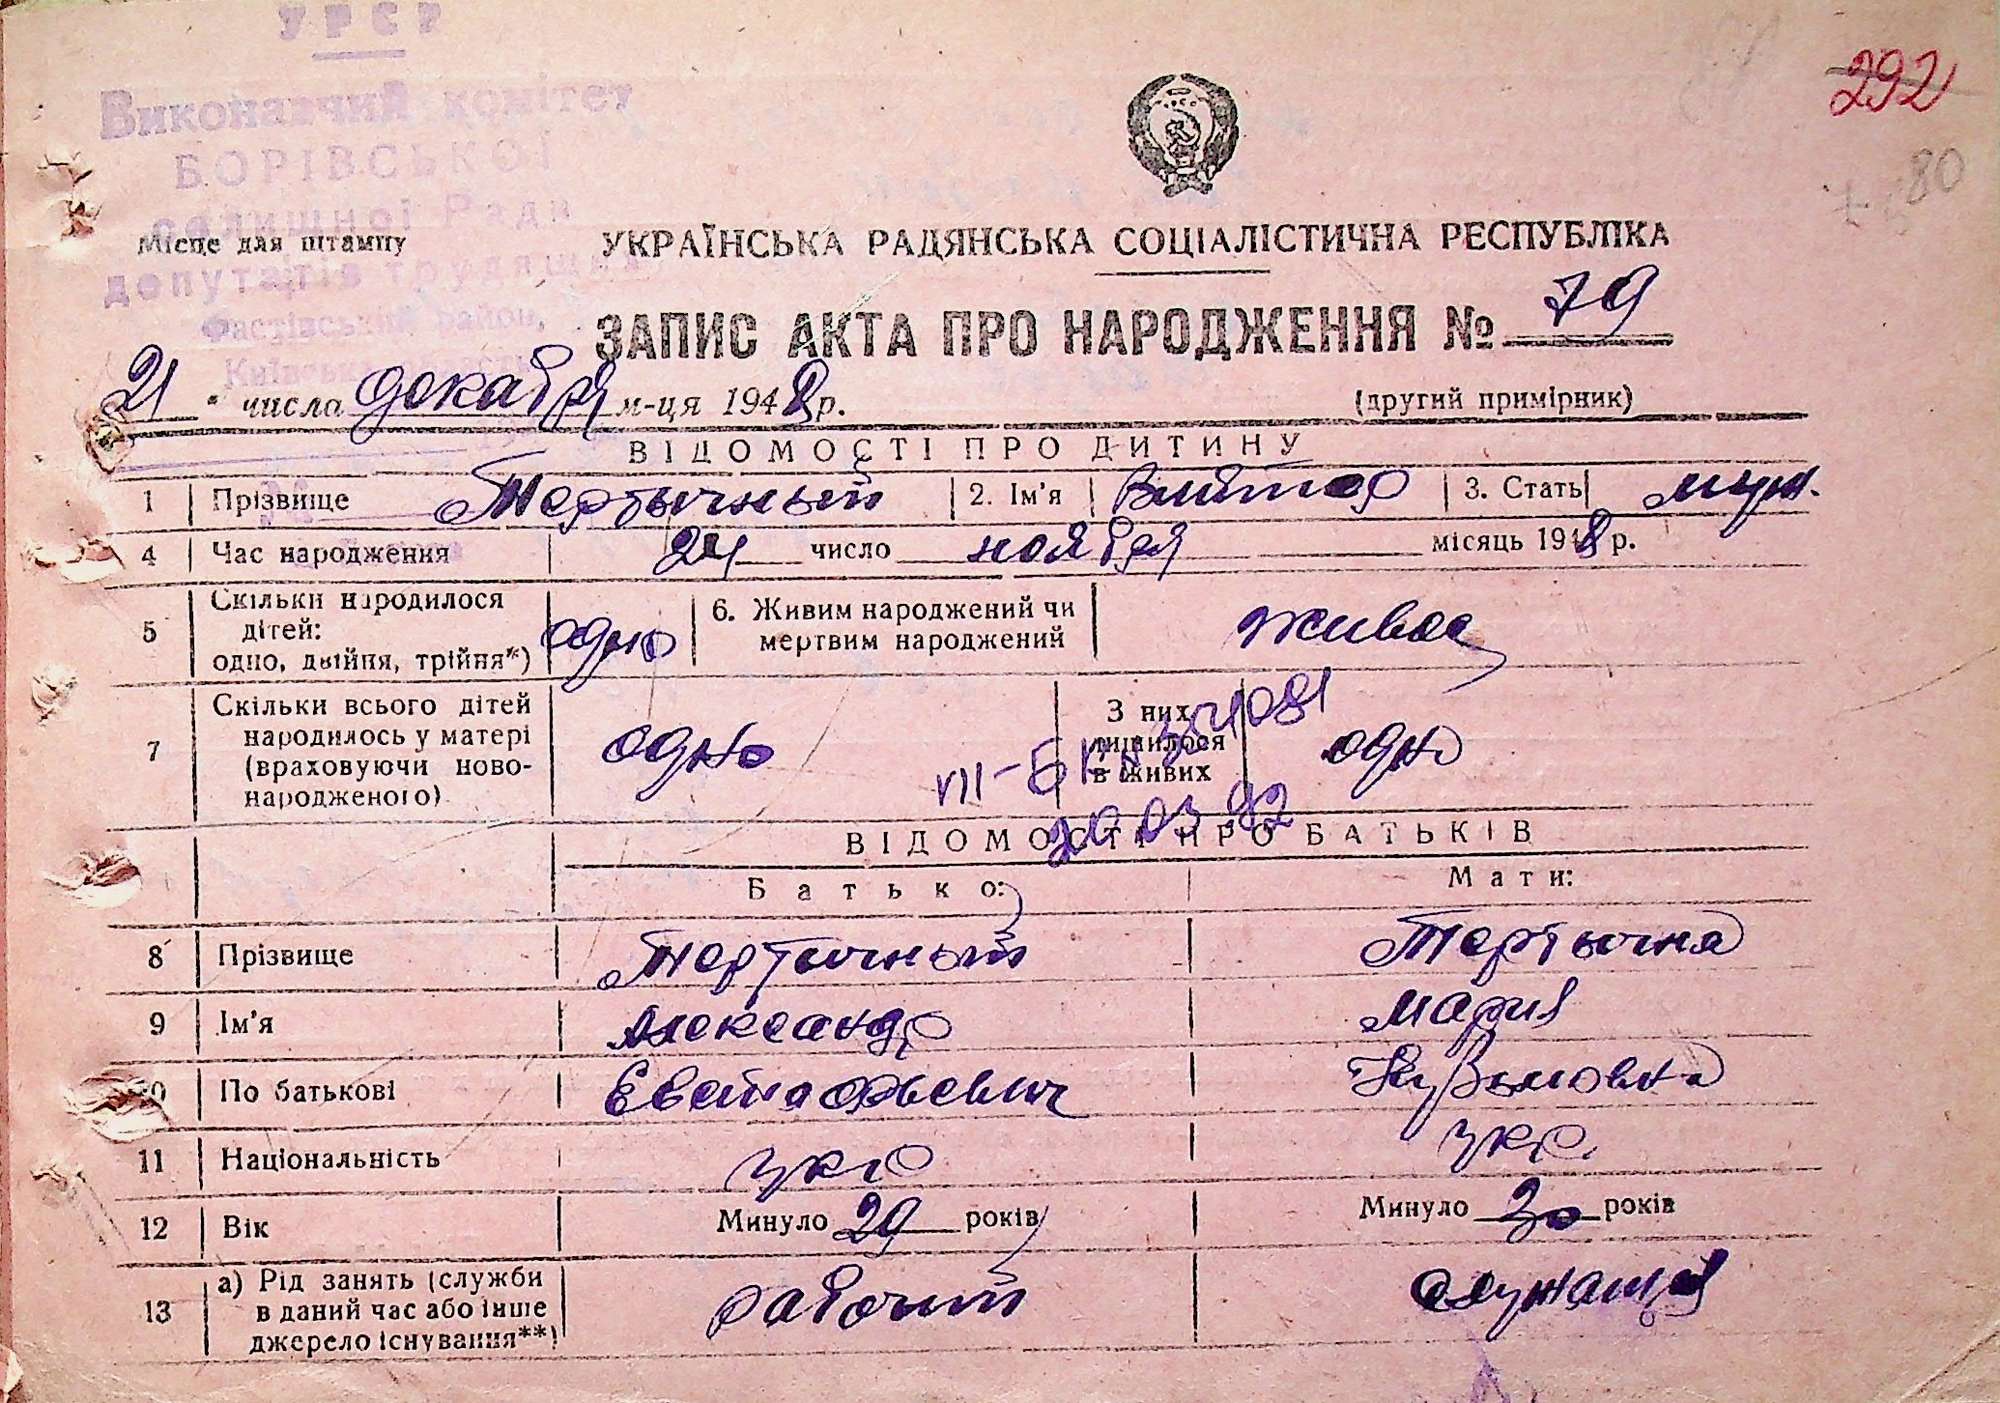 УРСР
292
Виконавчий комітет
БОРІВСЬКОЇ
80
селищної Ради
Місце для штампу
УКРАЇНСЬКА РАДЯНСЬКА СОЦІАЛІСТИЧНА РЕСПУБЛІКА
депутатів трудящих
Фастівський район,
ЗАПИС АКТА ПРО НАРОДЖЕННЯ № 79
21 " числа декабря м-ця 1948 р.
(другий примірник)
ВІДОМОСТІ ПРО ДИТИНУ
1 Прізвище Тертычный 2. Ім'я Виктор 3. Стать муж.
4 Час народження 24 число ноября місяць 1948 р.
5 Скільки народилося дітей: одно, двійня, трійня*) одно 6. Живим народжений чи мертвим народжений живое
7 Скільки всього дітей народилось у матері (враховуючи новонародженого) одно З них лишилося в живих одно
VII-БК № 354081
20 03 92
ВІДОМОСТІ ПРО БАТЬКІВ
Батько: Мати:
8 Прізвище Тертычный Тертычная
9 Ім'я Александр Мария
10 По батькові Евстафьевич Кузьмовна
11 Національність укр укр.
12 Вік Минуло 29 років Минуло 30 років
13 а) Рід занять (служби в даний час або інше джерело існування**) рабочий служащая